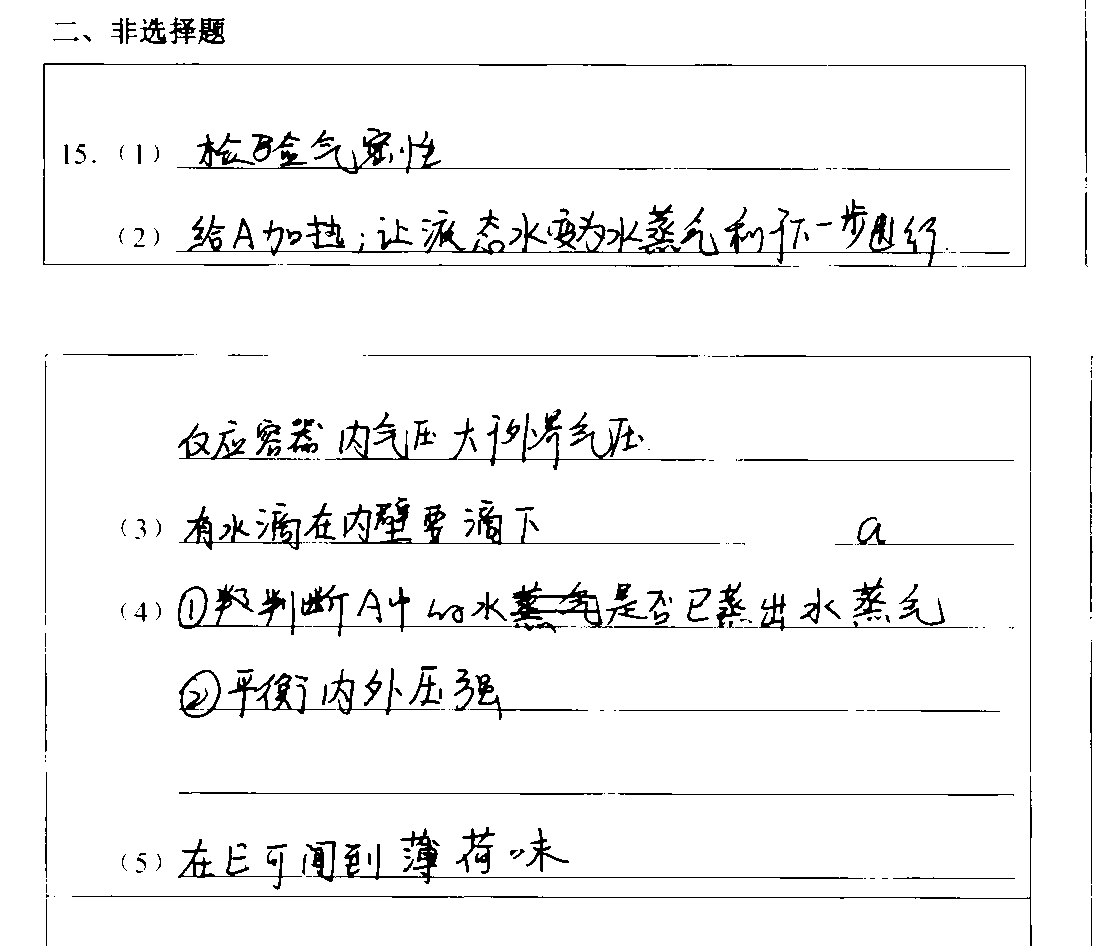 二、非选择题
15.（1）检验气密性
（2）给A加热；让液态水变为水蒸气利于下一步进行
仪应容器内气压大于外界气压
（3）有水滴在内壁要滴下 a
（4）①判断A中的水是否已蒸出水蒸气
②平衡内外压强
（5）在E可闻到薄荷味